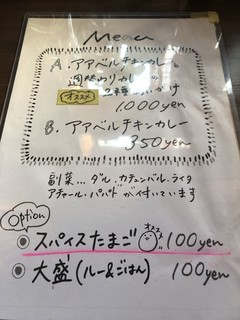 Menu
A. アアベルチキンカレー &
週替わりカレー
オススメ 2種あいがけ
1,000yen
B. アアベルチキンカレー
850yen
副菜... ダル、カチュンバル、ライタ
アチャール、パパドが付いています
Option
スパイスたまご オススメ 100yen
大盛(ルー&ごはん) 100yen